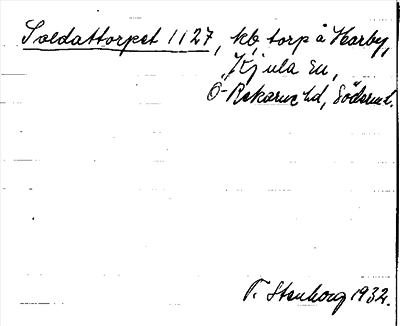 Soldattorpet 1127, kb, torp å Harby,
Kjula sn,
Ö-Rekarne hd, Söderml.
T. Stenborg 1932.